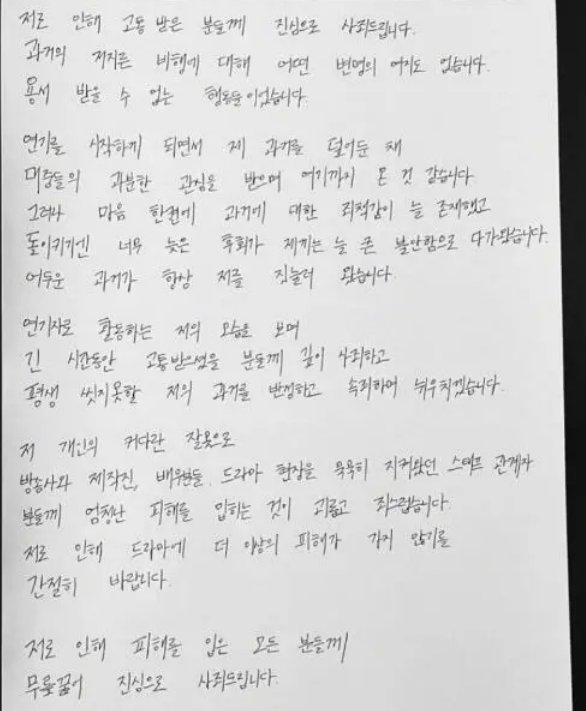 저로 인해 고통 받은 분들께 진심으로 사죄드립니다.
과거의 저지른 비행에 대해 어떤 변명의 여지도 없습니다.
용서 받을 수 없는 행동들이었습니다.
연기를 시작하게 되면서 제 과거를 덮어둔 채
대중들의 과분한 관심을 받으며 여기까지 온 것 같습니다
그러나 마음 한켠에 과거에 대한 죄책감이 늘 존재했고
돌이키기엔 너무 늦은 후회가 저에게는 늘 큰 불안함으로 다가왔습니다.
어두운 과거가 항상 저를 짓눌러 왔습니다.
연기자로 활동하는 저의 모습을 보며
긴 시간동안 고통받으셨을 분들께 깊이 사죄하고
평생 씻지못할 저의 과거를 반성하고 속죄하며 뉘우치겠습니다.
저 개인의 커다란 잘못으로
방송사와 제작진, 배우분들, 드라마 현장을 묵묵히 지켜왔던 스태프 관계자
분들께 엄청난 피해를 입히는 것이 괴롭고 죄스럽습니다.
저로 인해 드라마에 더 이상의 피해가 가지 않기를
간절히 바랍니다.
저로 인해 피해를 입은 모든 분들께
무릎꿇어 진심으로 사죄드립니다.